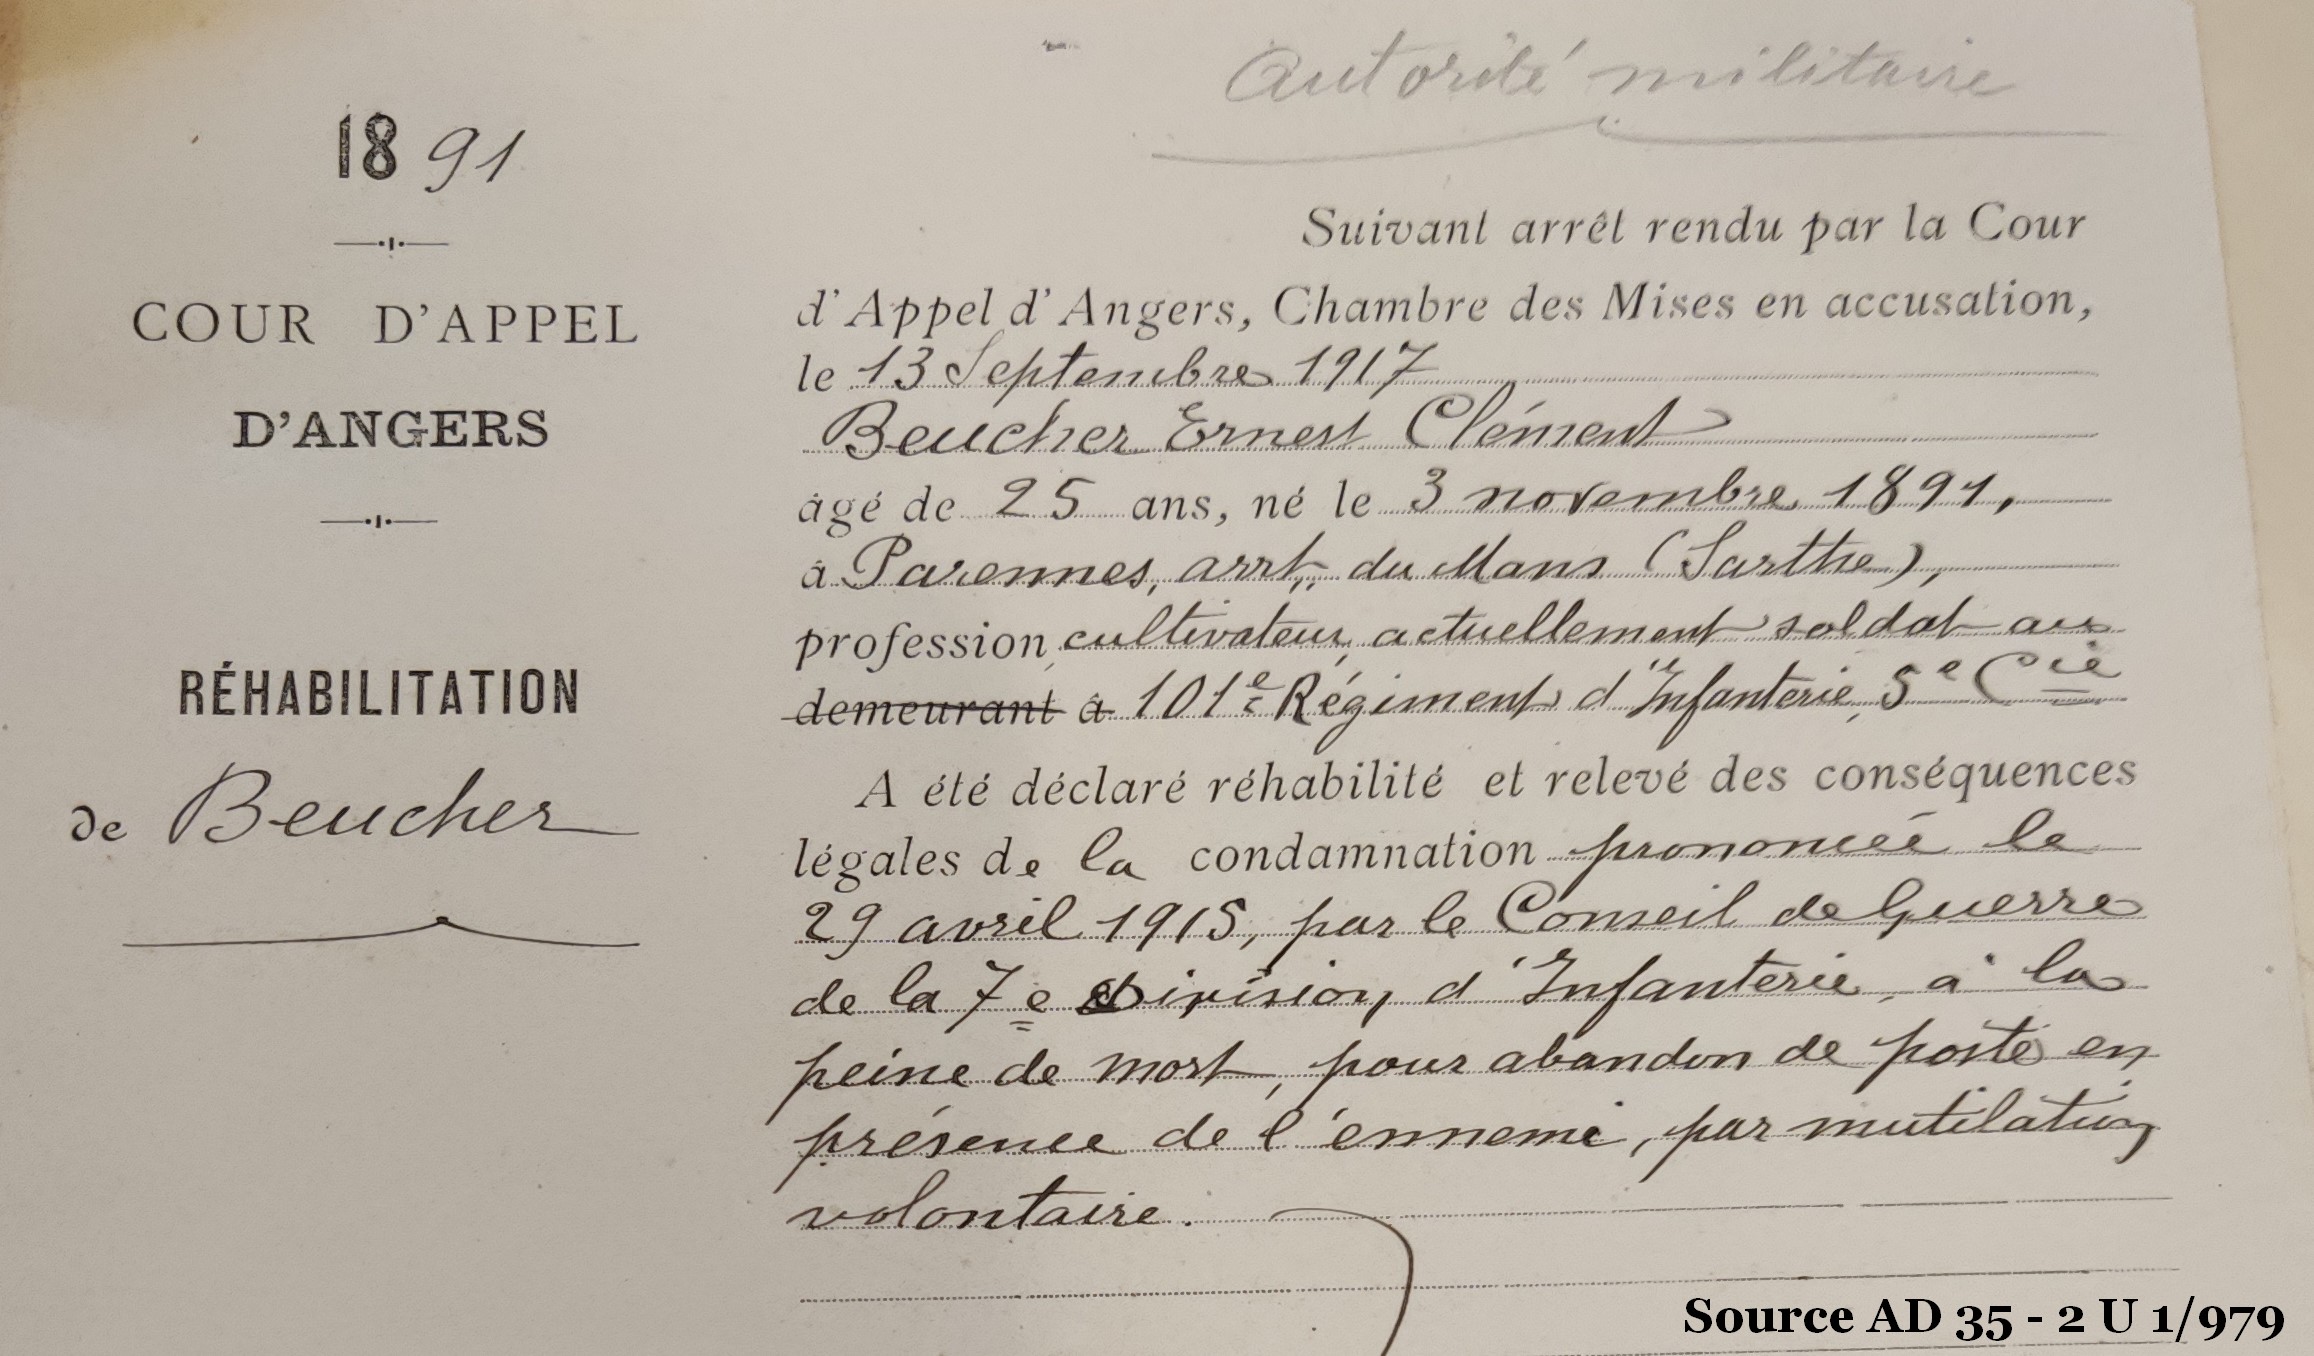 1891
COUR D'APPEL
D'ANGERS
RÉHABILITATION
de Beucher
Autorité militaire
Suivant arrêt rendu par la Cour
d'Appel d'Angers, Chambre des Mises en accusation,
le 13 Septembre 1917
Beucher Ernest Clément
âgé de 25 ans, né le 3 novembre 1891,
à Parennes, arrt, du Mans (Sarthe),
profession, cultivateur, actuellement soldat au
demeurant à 101e Régiment d'Infanterie, 5e Cie
A été déclaré réhabilité et relevé des conséquences
légales de la condamnation prononcée le
29 avril 1915, par le Conseil de Guerre
de la 7e Division d'Infanterie, à la
peine de mort, pour abandon de poste en
présence de l'ennemi, par mutilation
volontaire.
Source AD 35 - 2 U 1/979